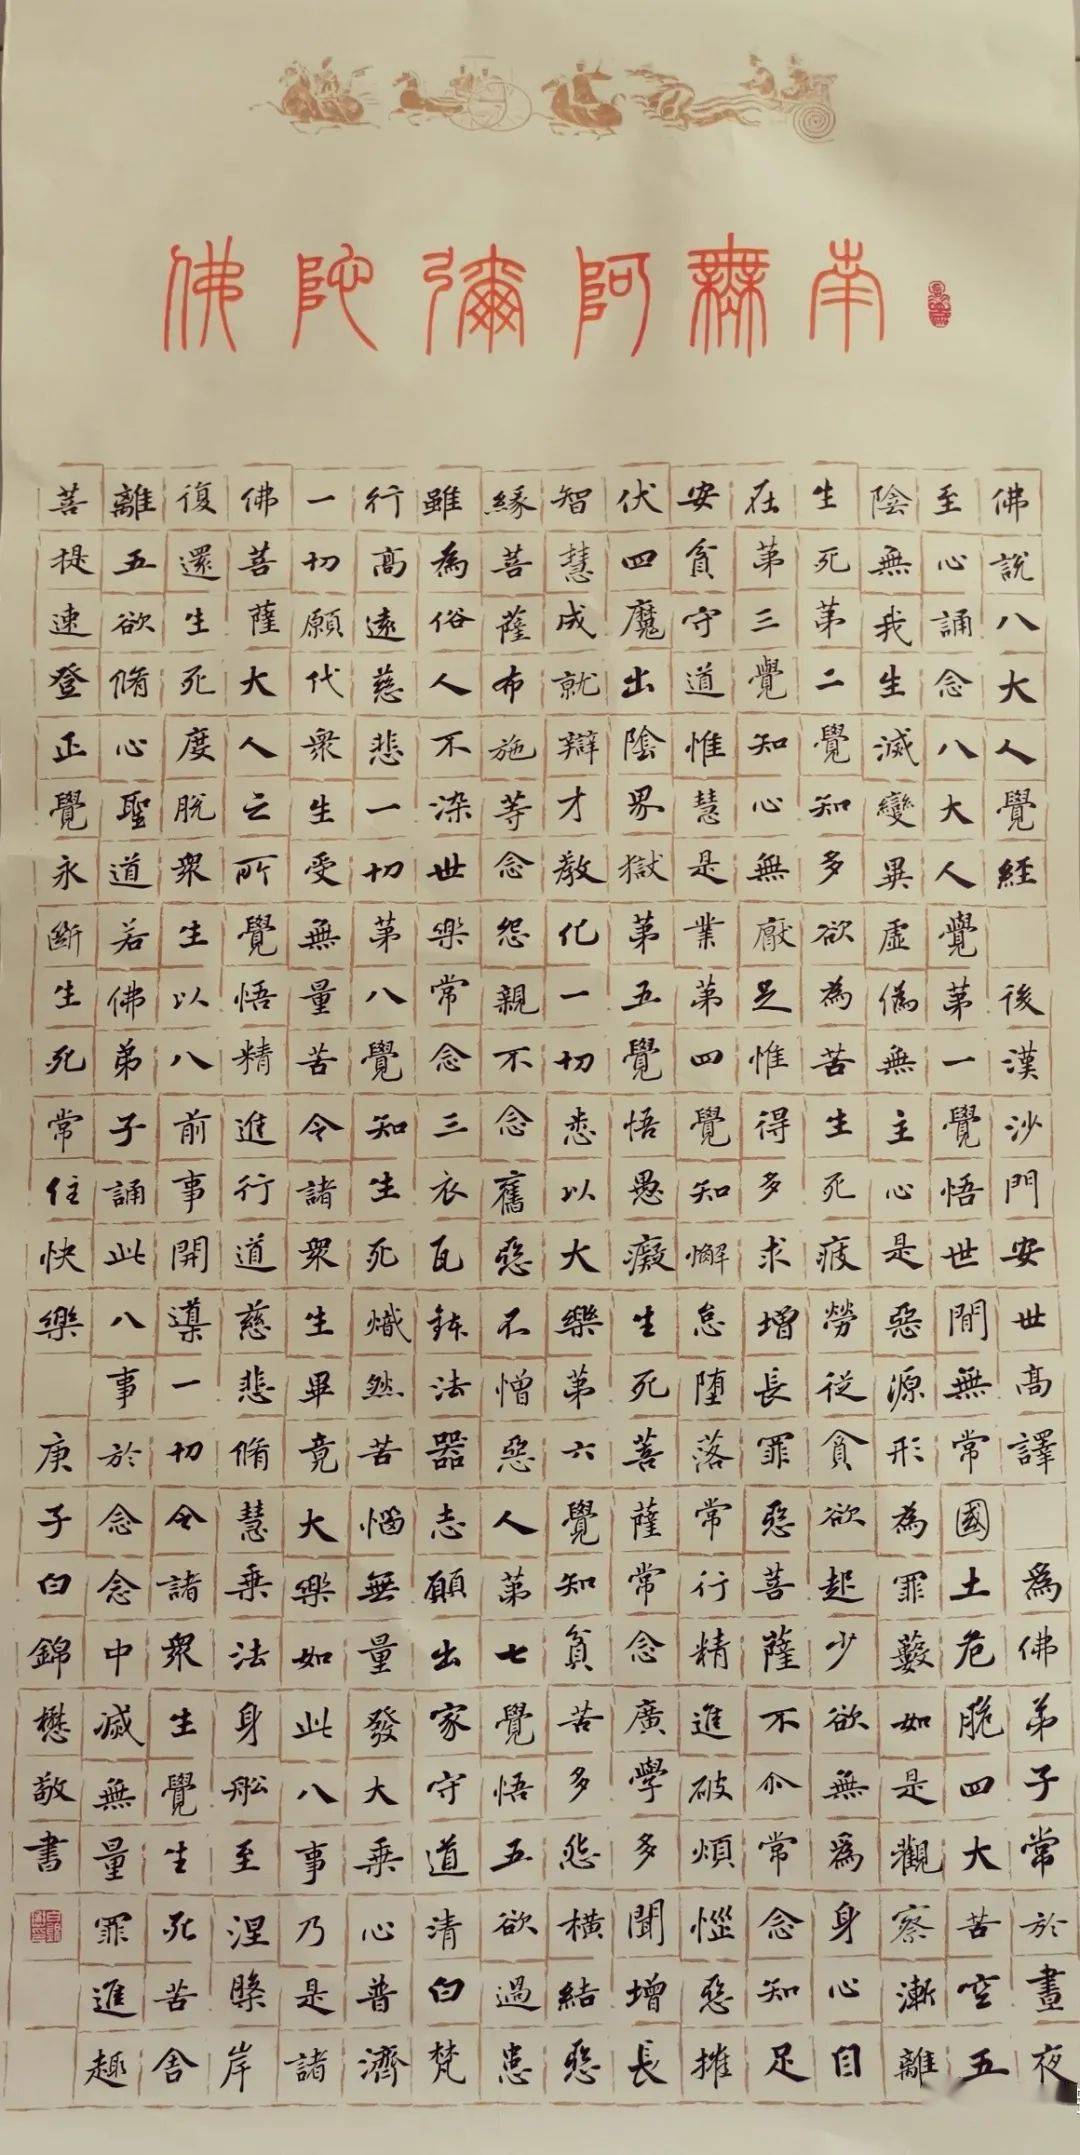 南無阿彌陀佛
佛說八大人覺經 後漢沙門安世高譯 為佛弟子常於晝夜
至心誦念八大人覺第一覺悟世間無常國土危脆四大苦空五
陰無我生滅變異虛偽無主心是惡源形為罪藪如是觀察漸離
生死第二覺知多欲為苦生死疲勞從貪欲起少欲無為身心自
在第三覺知心無厭足惟得多求增長罪惡菩薩不尒常念知足
安貧守道惟慧是業第四覺知懈怠堕落常行精進破煩惱惡摧
伏四魔出陰界獄第五覺悟愚癡生死菩薩常念廣學多聞增長
智慧成就辯才教化一切悉以大樂第六覺知貧苦多怨橫結惡
緣菩薩布施等念怨親不念舊惡不憎惡人第七覺悟五欲過患
雖為俗人不染世樂常念三衣瓦鉢法器志願出家守道清白梵
行高遠慈悲一切第八覺知生死熾然苦惱無量發大乘心普濟
一切願代眾生受無量苦令諸眾生畢竟大樂如此八事乃是諸
佛菩薩大人之所覺悟精進行道慈悲脩慧乘法身船至涅槃岸
復還生死度脫眾生以八前事開導一切令諸眾生覺生死苦舍
離五欲脩心聖道若佛弟子誦此八事於念念中滅無量罪進趣
菩提速登正覺永斷生死常住快樂 庚子白錦懋敬書